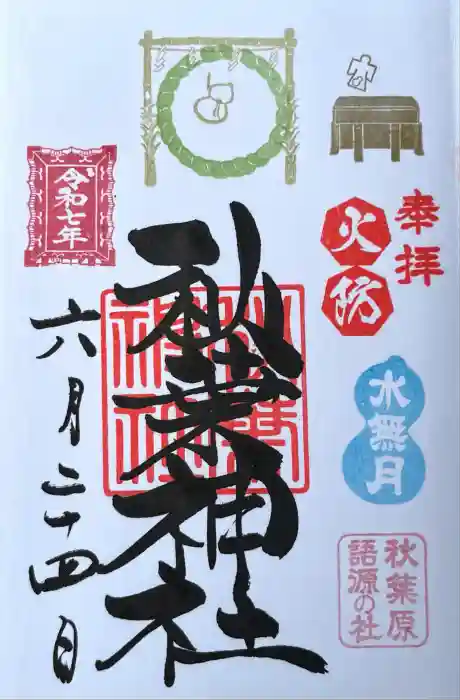 奉拝
火防
水無月
秋葉原
語源の社
秋葉神社
秋葉神社
令和七年
六月二十四日